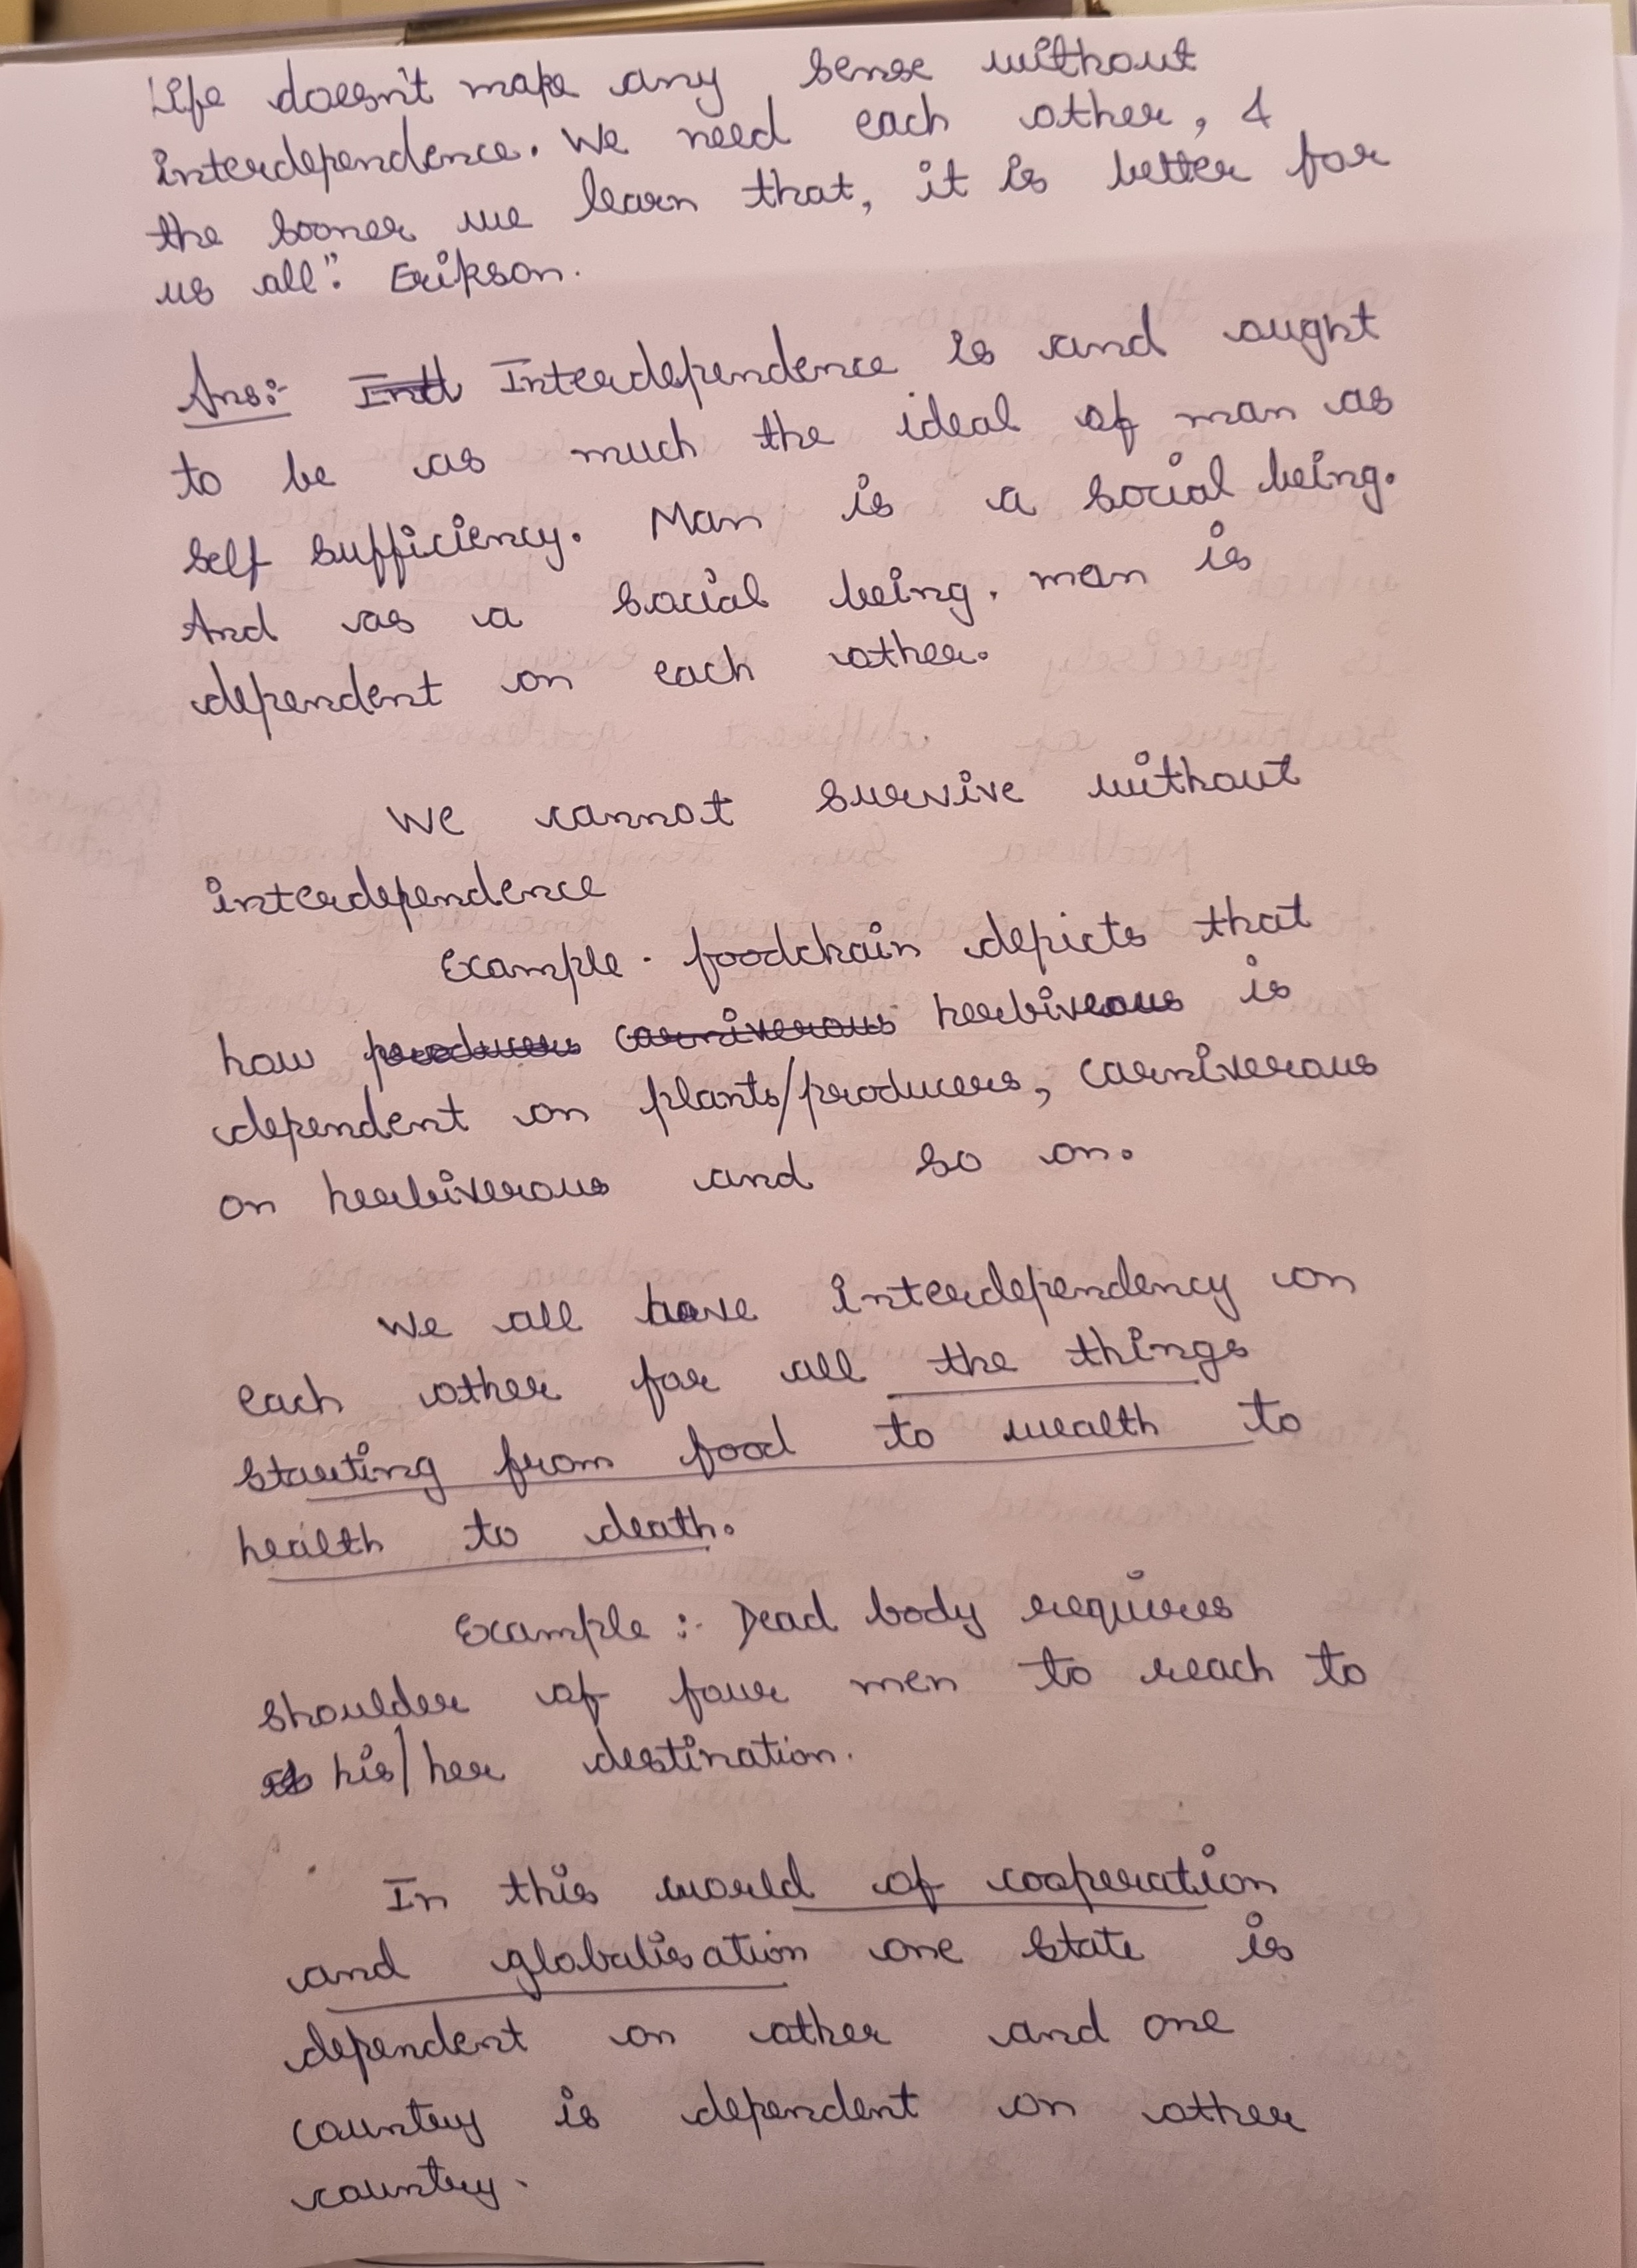 Life doesn't make any sense without
interdependence. We need each other, &
the sooner we learn that, it is better for
us all". Erikson.
Ans:- Interdependence is and ought
to be as much the ideal of man as
self sufficiency. Man is a social being.
And as a social being. man is
dependent on each other.
We cannot survive without
interdependence
Example. foodchain depicts that
how producers carniverous herbiverous is
dependent on plants/producers, carniverous
on herbiverous and so on.
We all have interdependency on
each other for all the things
starting from food to wealth to
health to death.
Example :- Dead body requires
shoulder of four men to reach to
his/her destination.
In this world of cooperation
and globalisation one state is
dependent on other and one
country is dependent on other
country.